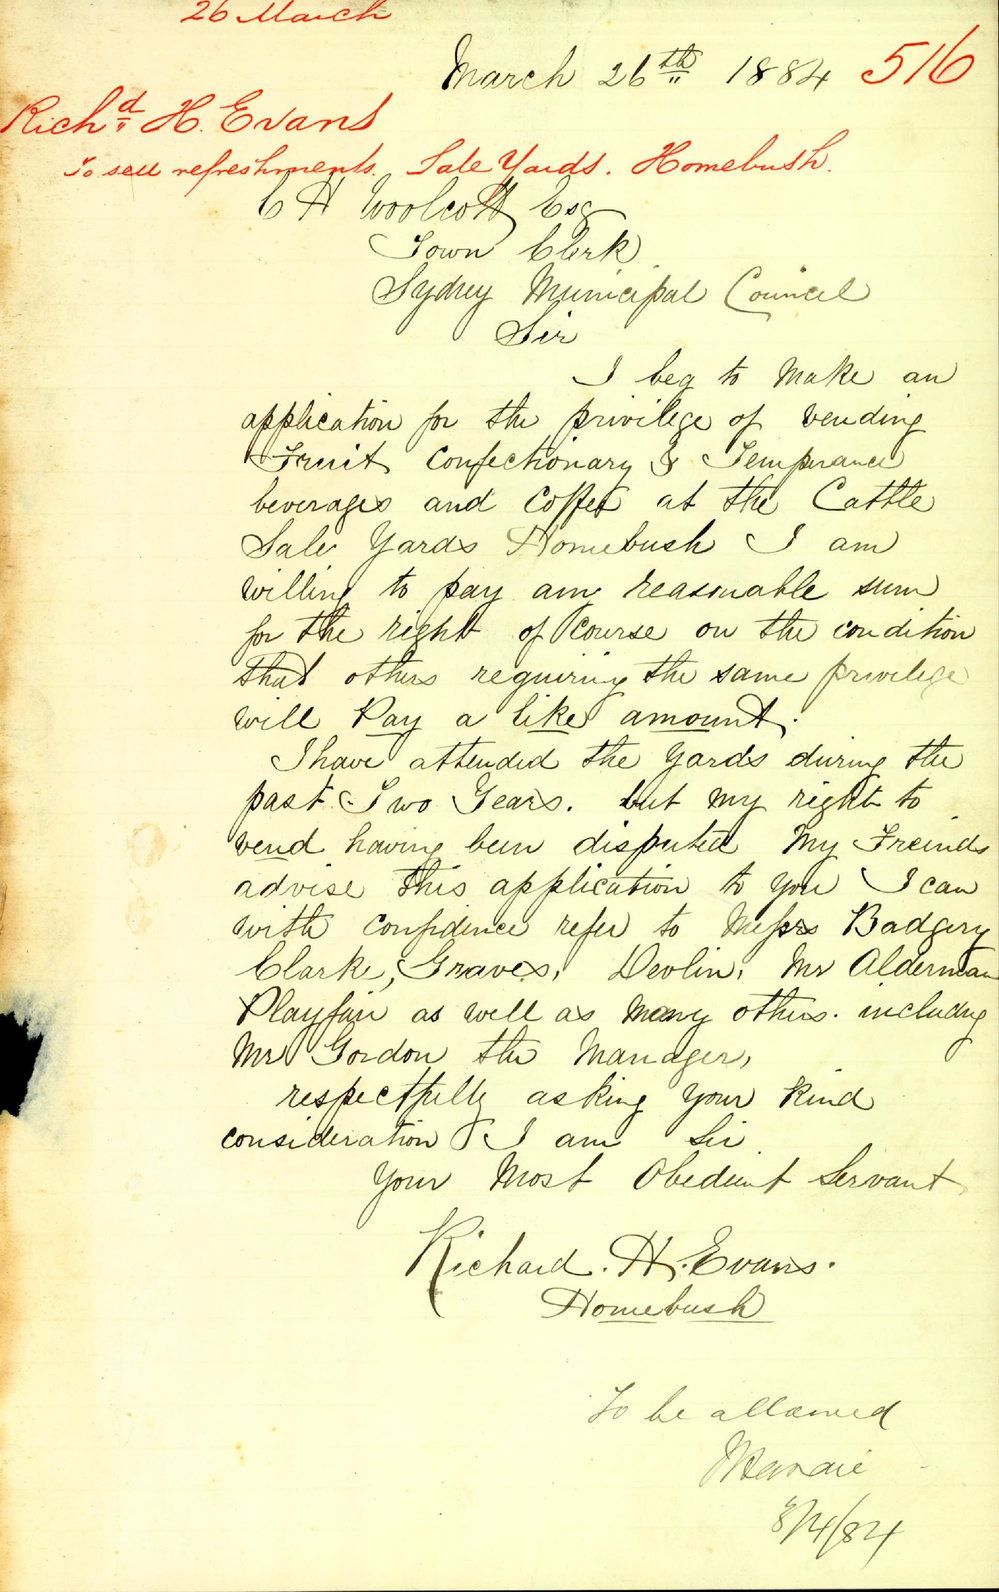 26 March
March 26th 1884 516
Richd H. Evans
To sell refreshments. Sale Yards. Homebush.
C H Woolcott Esq
Town Clerk
Sydney Municipal Council
Sir
I beg to make an
application for the privilege of vending
Fruit Confectionary & Temperance
beverages and Coffee at the Cattle
Sale Yards Homebush I am
willing to pay any reasonable sum
for the right of course on the condition
that others requiring the same privilege
will Pay a like amount.
I have attended the Yards during the
past Two Years. but my right to
vend having been disputed My Freinds
advise this application to you I can
with confidence refer to Messrs Badgery
Clarke, Graves, Devlin, Mr Alderman
Playfair as well as many others. including
Mr Gordon the Manager,
respectfully asking your kind
consideration I am Sir
Your Most Obedient Servant
Richard. H. Evans.
Homebush
To be allowed
8/4/84